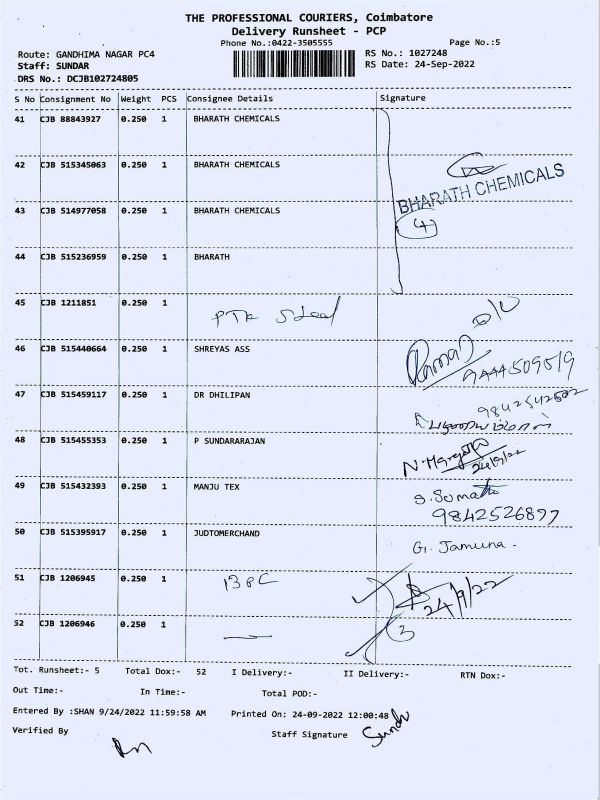 THE PROFESSIONAL COURIERS, Coimbatore
Delivery Runsheet - PCP
Phone No.:0422-3505555
Page No.:5
Route: GANDHIMA NAGAR PC4
RS No.: 1027248
Staff: SUNDAR
RS Date: 24-Sep-2022
DRS No.: DCJB102724805
S No Consignment No Weight PCS Consignee Details Signature
41 CJB 88843927 0.250 1 BHARATH CHEMICALS
42 CJB 515345063 0.250 1 BHARATH CHEMICALS
BHARATH CHEMICALS
43 CJB 514977058 0.250 1 BHARATH CHEMICALS
4
44 CJB 515236959 0.250 1 BHARATH
45 CJB 1211851 0.250 1
46 CJB 515440664 0.250 1 SHREYAS ASS
47 CJB 515459117 0.250 1 DR DHILIPAN
48 CJB 515455353 0.250 1 P SUNDARARAJAN
24/9/22
49 CJB 515432393 0.250 1 MANJU TEX
9842526897
50 CJB 515395917 0.250 1 JUDTOMERCHAND G. Jamuna
51 CJB 1206945 0.250 1
24/9/22
52 CJB 1206946 0.250 1 3
Tot. Runsheet:- 5 Total Dox:- 52 I Delivery:- II Delivery:- RTN Dox:-
Out Time:- In Time:- Total POD:-
Entered By :SHAN 9/24/2022 11:59:58 AM Printed On: 24-09-2022 12:00:48
Verified By Staff Signature